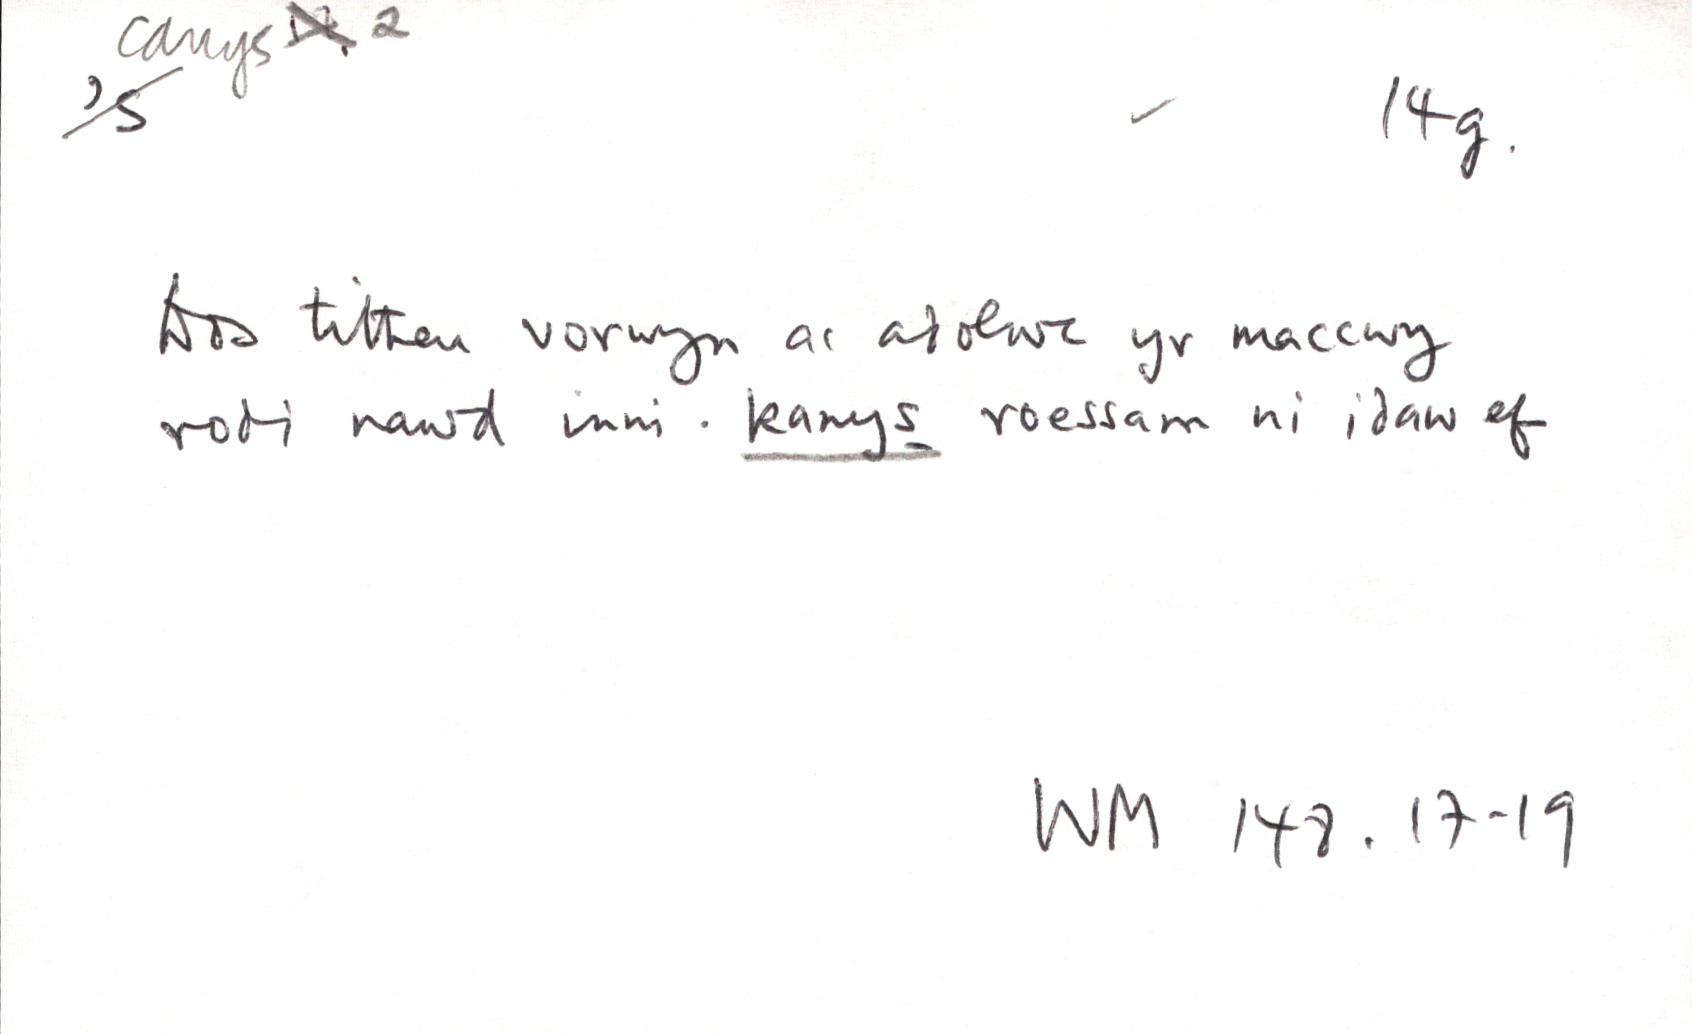 canys 2
's
14g.
Dos titheu vorwyn ac adolwc yr maccwy
rodi nawd inni. kanys roessam ni idaw ef
WM 148. 17-19